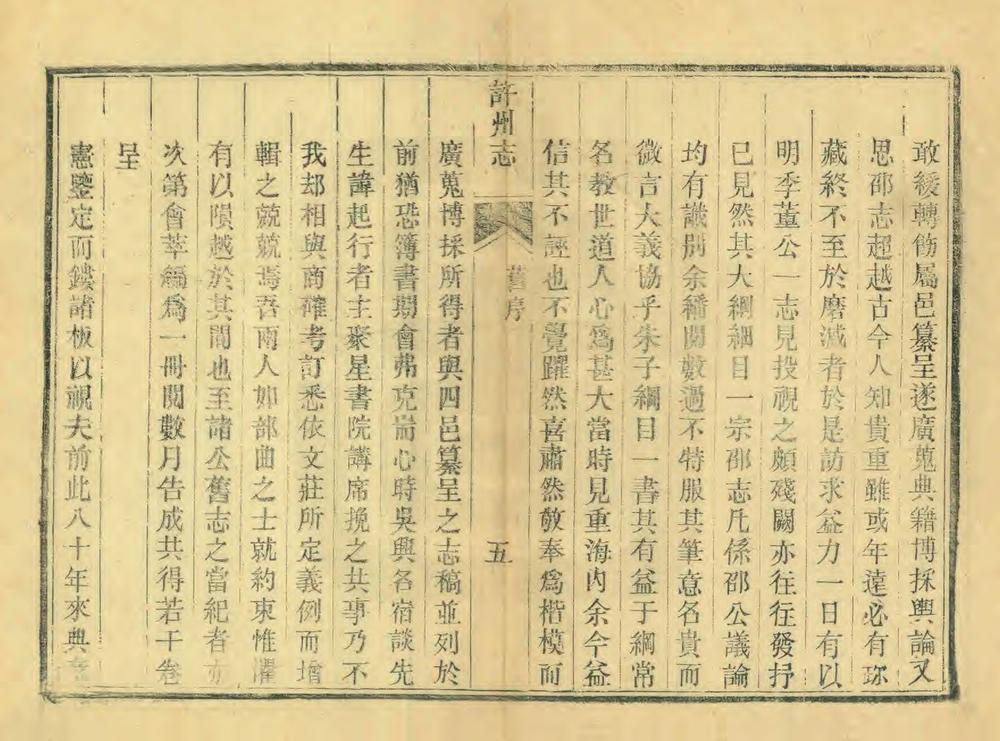 敢緩轉飭屬邑纂呈遂廣蒐典籍博採輿論又
思邵志超越古今人知貴重雖或年遠必有珎
藏終不至於磨滅者於是訪求益力一日有以
明季董公 志見投視之頗殘闕亦往往發抒
已見然其大綱綱目一宗邵志凡係邵公議論
均有識別余繙閱數過不特服其筆意名貴而
微言大義協乎朱子綱目一書其有益于綱常
名教世道人心為甚大當時見重海內余今益
信其不誣也不覺躍然喜肅然敬奉為楷模而
許州志 舊序 五
廣蒐博採所得者與四邑纂呈之志稿並列於
前猶恐簿書期會弗克耑心時吳興名宿談先
生諱起行者主聚星書院講席挽之共事乃不
我却相與商確考訂悉依文莊所定義例而增
輯之兢兢焉吾兩人如部曲之士就約束惟懼
有以隕越於其間也至諸公舊志之當紀者亦
次第會萃編為一冊閱數月告成共得若干卷
呈
憲鑒定而鋟諸板以視夫前此八十年來典